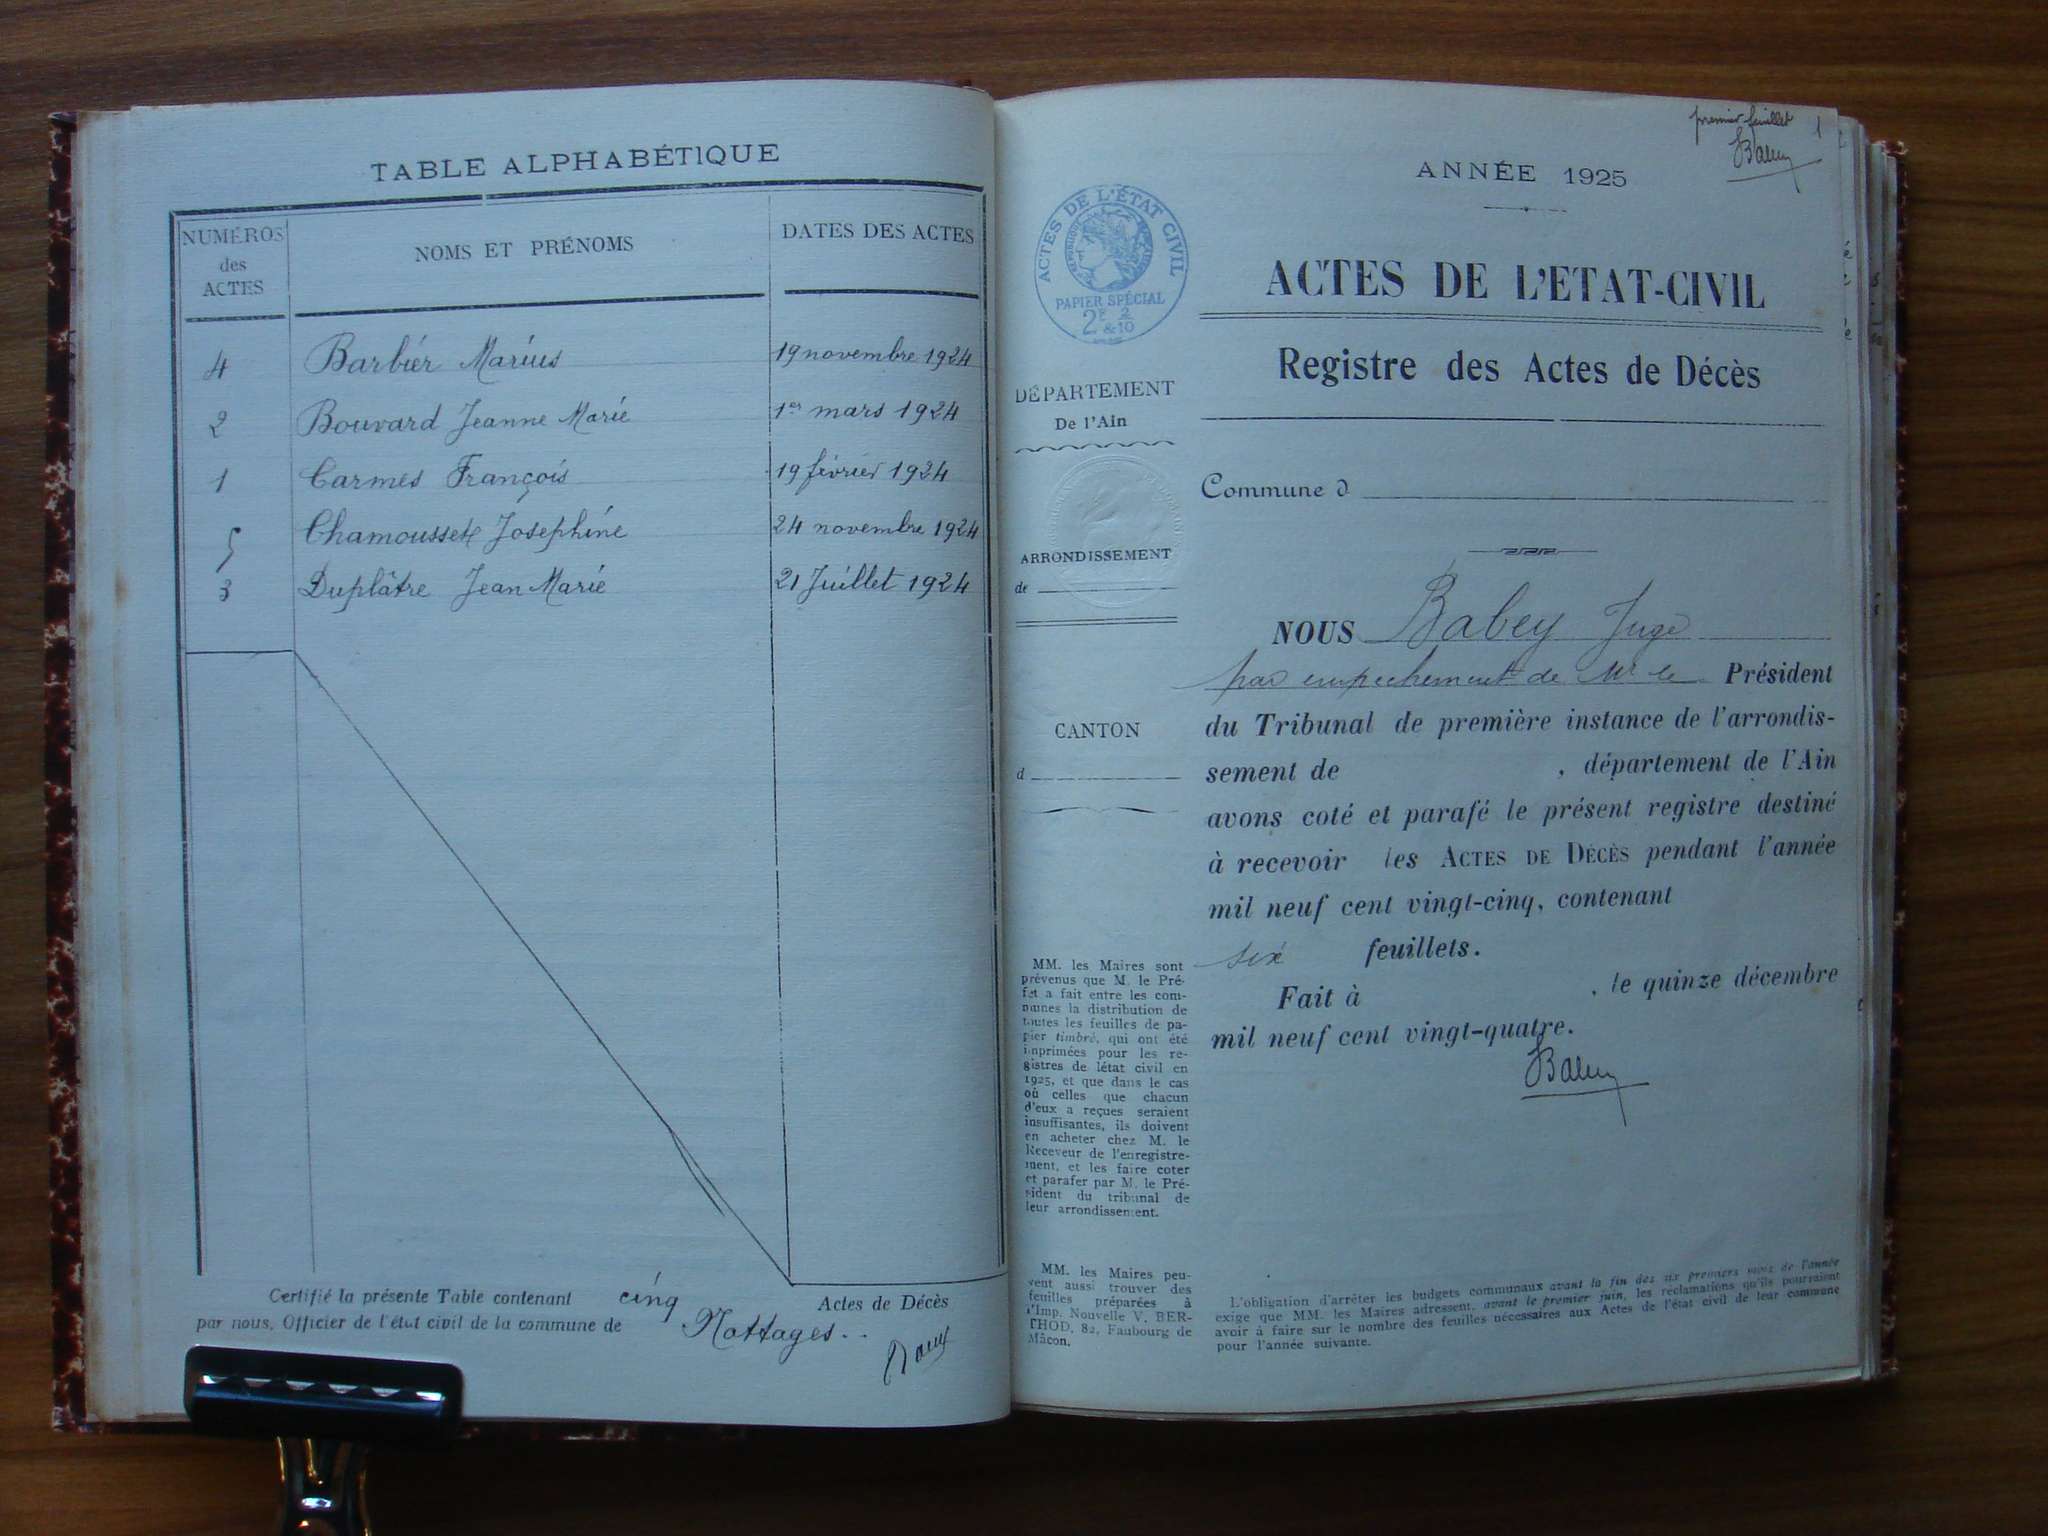 TABLE ALPHABÉTIQUE
NUMÉROS
des
ACTES
NOMS ET PRÉNOMS
DATES DES ACTES
4 Barbier Marius 19 novembre 1924
2 Bouvard Jeanne Marie 1er mars 1924
1 Carmes François 19 février 1924
5 Chamousset Joséphine 24 novembre 1924
3 Duplâtre Jean Marie 21 Juillet 1924
Certifié la présente Table contenant cinq Actes de Décès
par nous, Officier de l'état civil de la commune de Nattages..
premier feuillet 1
Babey
ANNÉE 1925
ACTES DE L'ÉTAT CIVIL
PAPIER SPÉCIAL
2F 2
&10
ACTES DE L'ETAT-CIVIL
Registre des Actes de Décès
DÉPARTEMENT
De l'Ain
Commune d
ARRONDISSEMENT
de
CANTON
d
NOUS Babey Juge
par empechement de Mr le Président
du Tribunal de première instance de l'arrondis-
sement de , département de l'Ain
avons coté et parafé le présent registre destiné
à recevoir les ACTES DE DÉCÈS pendant l'année
mil neuf cent vingt-cinq, contenant
six feuillets.
Fait à , le quinze décembre
mil neuf cent vingt-quatre.
Babey
MM. les Maires sont
prévenus que M. le Pré-
fet a fait entre les com-
munes la distribution de
toutes les feuilles de pa-
pier timbré, qui ont été
imprimées pour les re-
gistres de létat civil en
1925, et que dans le cas
où celles que chacun
d'eux a reçues seraient
insuffisantes, ils doivent
en acheter chez M. le
Receveur de l'enregistre-
ment, et les faire coter
et parafer par M. le Pré-
sident du tribunal de
leur arrondissement.
MM. les Maires peu-
vent aussi trouver des
feuilles préparées à
l'Imp. Nouvelle V. BER-
THOD, 82, Faubourg de
Mâcon.
L'obligation d'arrêter les budgets communaux avant la fin des six premiers mois de l'année
exige que MM. les Maires adressent, avant le premier juin, les réclamations qu'ils pourraient
avoir à faire sur le nombre des feuilles nécessaires aux Actes de l'état civil de leur commune
pour l'année suivante.